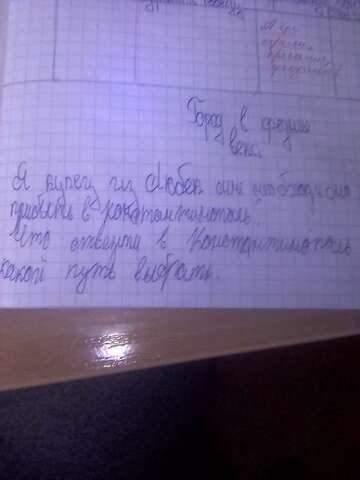 Город в средние
века
Я купец из Любек мне необходимо
прибыть в Константинополь.
Что отвезти в Константинополь
какой путь выбрать.